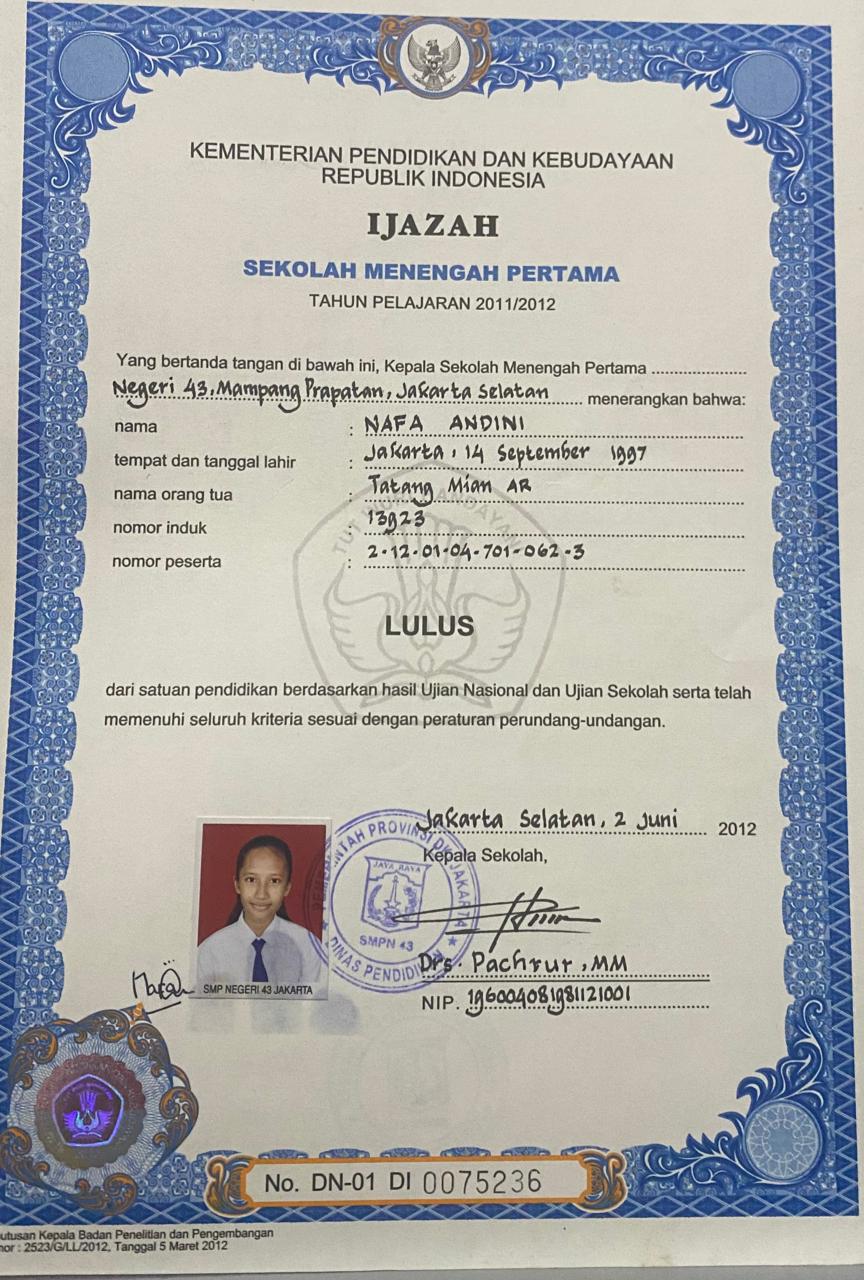 KEMENTERIAN PENDIDIKAN DAN KEBUDAYAAN
REPUBLIK INDONESIA
IJAZAH
SEKOLAH MENENGAH PERTAMA
TAHUN PELAJARAN 2011/2012
Yang bertanda tangan di bawah ini, Kepala Sekolah Menengah Pertama
Negeri 43, Mampang Prapatan, Jakarta Selatan menerangkan bahwa:
nama : NAFA ANDINI
tempat dan tanggal lahir : Jakarta, 14 September 1997
nama orang tua : Tatang Mian AR
nomor induk : 13923
nomor peserta : 2-12-01-04-701-062-3
TUT WURI HANDAYANI
LULUS
dari satuan pendidikan berdasarkan hasil Ujian Nasional dan Ujian Sekolah serta telah
memenuhi seluruh kriteria sesuai dengan peraturan perundang-undangan.
Jakarta Selatan, 2 Juni 2012
Kepala Sekolah,
PEMERINTAH PROVINSI DKI JAKARTA
JAYA RAYA
SMPN 43
DINAS PENDIDIKAN
Drs. Pachrur, MM
NIP. 196004081981121001
SMP NEGERI 43 JAKARTA
No. DN-01 DI 0075236
utusan Kepala Badan Penelitian dan Pengembangan
nor : 2523/G/LL/2012, Tanggal 5 Maret 2012